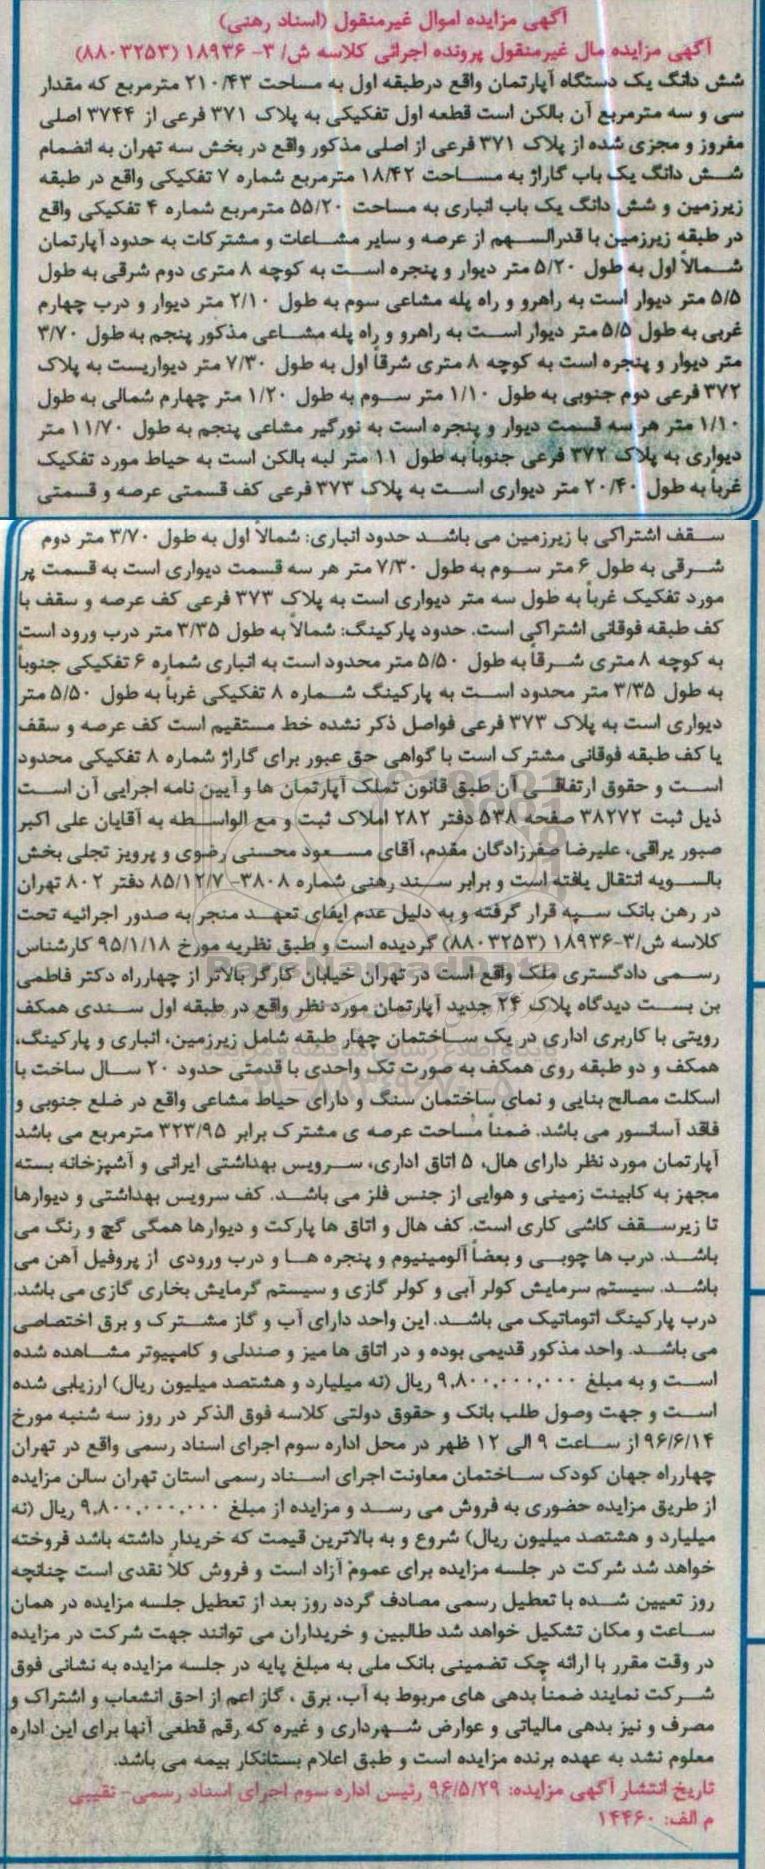 آگهی مزایده اموال غیرمنقول (اسناد رهنی)
آگهی مزایده مال غیرمنقول پرونده اجرائی کلاسه ش/ ۳- ۱۸۹۳۶ (۸۸۰۳۲۵۳)
شش دانگ یک دستگاه آپارتمان واقع درطبقه اول به مساحت ۲۱۰/۴۳ مترمربع که مقدار
سی و سه مترمربع آن بالکن است قطعه اول تفکیکی به پلاک ۳۷۱ فرعی از ۳۷۴۴ اصلی
مفروز و مجزی شده از پلاک ۳۷۱ فرعی از اصلی مذکور واقع در بخش سه تهران به انضمام
شش دانگ یک باب گاراژ به مساحت ۱۸/۴۲ مترمربع شماره ۷ تفکیکی واقع در طبقه
زیرزمین و شش دانگ یک باب انباری به مساحت ۵۵/۲۰ مترمربع شماره ۴ تفکیکی واقع
در طبقه زیرزمین با قدرالسهم از عرصه و سایر مشاعات و مشترکات به حدود آپارتمان
شمالاً اول به طول ۵/۲۰ متر دیوار و پنجره است به کوچه ۸ متری دوم شرقی به طول
۵/۵ متر دیوار است به راهرو و راه پله مشاعی سوم به طول ۲/۱۰ متر دیوار و درب چهارم
غربی به طول ۵/۵ متر دیوار است به راهرو و راه پله مشاعی مذکور پنجم به طول ۳/۷۰
متر دیوار و پنجره است به کوچه ۸ متری شرقاً اول به طول ۷/۳۰ متر دیواریست به پلاک
۳۷۲ فرعی دوم جنوبی به طول ۱/۱۰ متر سوم به طول ۱/۲۰ متر چهارم شمالی به طول
۱/۱۰ متر هر سه قسمت دیوار و پنجره است به نورگیر مشاعی پنجم به طول ۱۱/۷۰ متر
دیواری به پلاک ۳۷۲ فرعی جنوباً به طول ۱۱ متر لبه بالکن است به حیاط مورد تفکیک
غرباً به طول ۲۰/۴۰ متر دیواری است به پلاک ۳۷۳ فرعی کف قسمتی عرصه و قسمتی
سقف اشتراکی با زیرزمین می باشد حدود انباری: شمالاً اول به طول ۳/۷۰ متر دوم
شرقی به طول ۶ متر سوم به طول ۷/۳۰ متر هر سه قسمت دیواری است به قسمت پر
مورد تفکیک غرباً به طول سه متر دیواری است به پلاک ۳۷۳ فرعی کف عرصه و سقف با
کف طبقه فوقانی اشتراکی است. حدود پارکینگ: شمالاً به طول ۳/۳۵ متر درب ورود است
به کوچه ۸ متری شرقاً به طول ۵/۵۰ متر محدود است به انباری شماره ۶ تفکیکی جنوباً
به طول ۳/۳۵ متر محدود است به پارکینگ شماره ۸ تفکیکی غرباً به طول ۵/۵۰ متر
دیواری است به پلاک ۳۷۳ فرعی فواصل ذکر نشده خط مستقیم است کف عرصه و سقف
با کف طبقه فوقانی مشترک است با گواهی حق عبور برای گاراژ شماره ۸ تفکیکی محدود
است و حقوق ارتفاقی آن طبق قانون تملک آپارتمان ها و آیین نامه اجرایی آن است
ذیل ثبت ۳۸۲۷۲ صفحه ۵۳۸ دفتر ۲۸۲ املاک ثبت و مع الواسطه به آقایان علی اکبر
صبور یراقی، علیرضا صفرزادگان مقدم، آقای مسعود محسنی رضوی و پرویز تجلی بخش
بالسویه انتقال یافته است و برابر سند رهنی شماره ۳۸۰۸- ۸۵/۱۲/۷ دفتر ۸۰۲ تهران
در رهن بانک سپه قرار گرفته و به دلیل عدم ایفای تعهد منجر به صدور اجرائیه تحت
کلاسه ش/۳-۱۸۹۳۶ (۸۸۰۳۲۵۳) گردیده است و طبق نظریه مورخ ۹۵/۱/۱۸ کارشناس
رسمی دادگستری ملک واقع است در تهران خیابان کارگر بالاتر از چهارراه دکتر فاطمی
بن بست دیدگاه پلاک ۲۴ جدید آپارتمان مورد نظر واقع در طبقه اول سندی همکف
رویتی با کاربری اداری در یک ساختمان چهار طبقه شامل زیرزمین، انباری و پارکینگ،
همکف و دو طبقه روی همکف به صورت تک واحدی با قدمتی حدود ۲۰ سال ساخت با
اسکلت مصالح بنایی و نمای ساختمان سنگ و دارای حیاط مشاعی واقع در ضلع جنوبی و
فاقد آسانسور می باشد. ضمناً مساحت عرصه ی مشترک برابر ۳۲۳/۹۵ مترمربع می باشد
آپارتمان مورد نظر دارای هال، ۵ اتاق اداری، سرویس بهداشتی ایرانی و آشپزخانه بسته
مجهز به کابینت زمینی و هوایی از جنس فلز می باشد. کف سرویس بهداشتی و دیوارها
تا زیرسقف کاشی کاری است. کف هال و اتاق ها پارکت و دیوارها همگی گچ و رنگ می
باشد. درب ها چوبی و بعضاً آلومینیوم و پنجره ها و درب ورودی از پروفیل آهن می
باشد. سیستم سرمایش کولر آبی و کولر گازی و سیستم گرمایش بخاری گازی می باشد.
درب پارکینگ اتوماتیک می باشد. این واحد دارای آب و گاز مشترک و برق اختصاصی
می باشد. واحد مذکور قدیمی بوده و در اتاق ها میز و صندلی و کامپیوتر مشاهده شده
است و به مبلغ ۹،۸۰۰،۰۰۰،۰۰۰ ریال (نه میلیارد و هشتصد میلیون ریال) ارزیابی شده
است و جهت وصول طلب بانک و حقوق دولتی کلاسه فوق الذکر در روز سه شنبه مورخ
۹۶/۶/۱۴ از ساعت ۹ الی ۱۲ ظهر در محل اداره سوم اجرای اسناد رسمی واقع در تهران
چهارراه جهان کودک ساختمان معاونت اجرای اسناد رسمی استان تهران سالن مزایده
از طریق مزایده حضوری به فروش می رسد و مزایده از مبلغ ۹،۸۰۰،۰۰۰،۰۰۰ ریال (نه
میلیارد و هشتصد میلیون ریال) شروع و به بالاترین قیمت که خریدار داشته باشد فروخته
خواهد شد شرکت در جلسه مزایده برای عموم آزاد است و فروش کلاً نقدی است چنانچه
روز تعیین شده با تعطیل رسمی مصادف گردد روز بعد از تعطیل جلسه مزایده در همان
ساعت و مکان تشکیل خواهد شد طالبین و خریداران می توانند جهت شرکت در مزایده
در وقت مقرر با ارائه چک تضمینی بانک ملی به مبلغ پایه در جلسه مزایده به نشانی فوق
شرکت نمایند ضمناً بدهی های مربوط به آب، برق ، گاز اعم از احق انشعاب و اشتراک و
مصرف و نیز بدهی مالیاتی و عوارض شهرداری و غیره که رقم قطعی آنها برای این اداره
معلوم نشد به عهده برنده مزایده است و طبق اعلام بستانکار بیمه می باشد.
تاریخ انتشار آگهی مزایده: ۹۶/۵/۲۹ رئیس اداره سوم اجرای اسناد رسمی- نقیبی
م الف: ۱۴۴۶۰